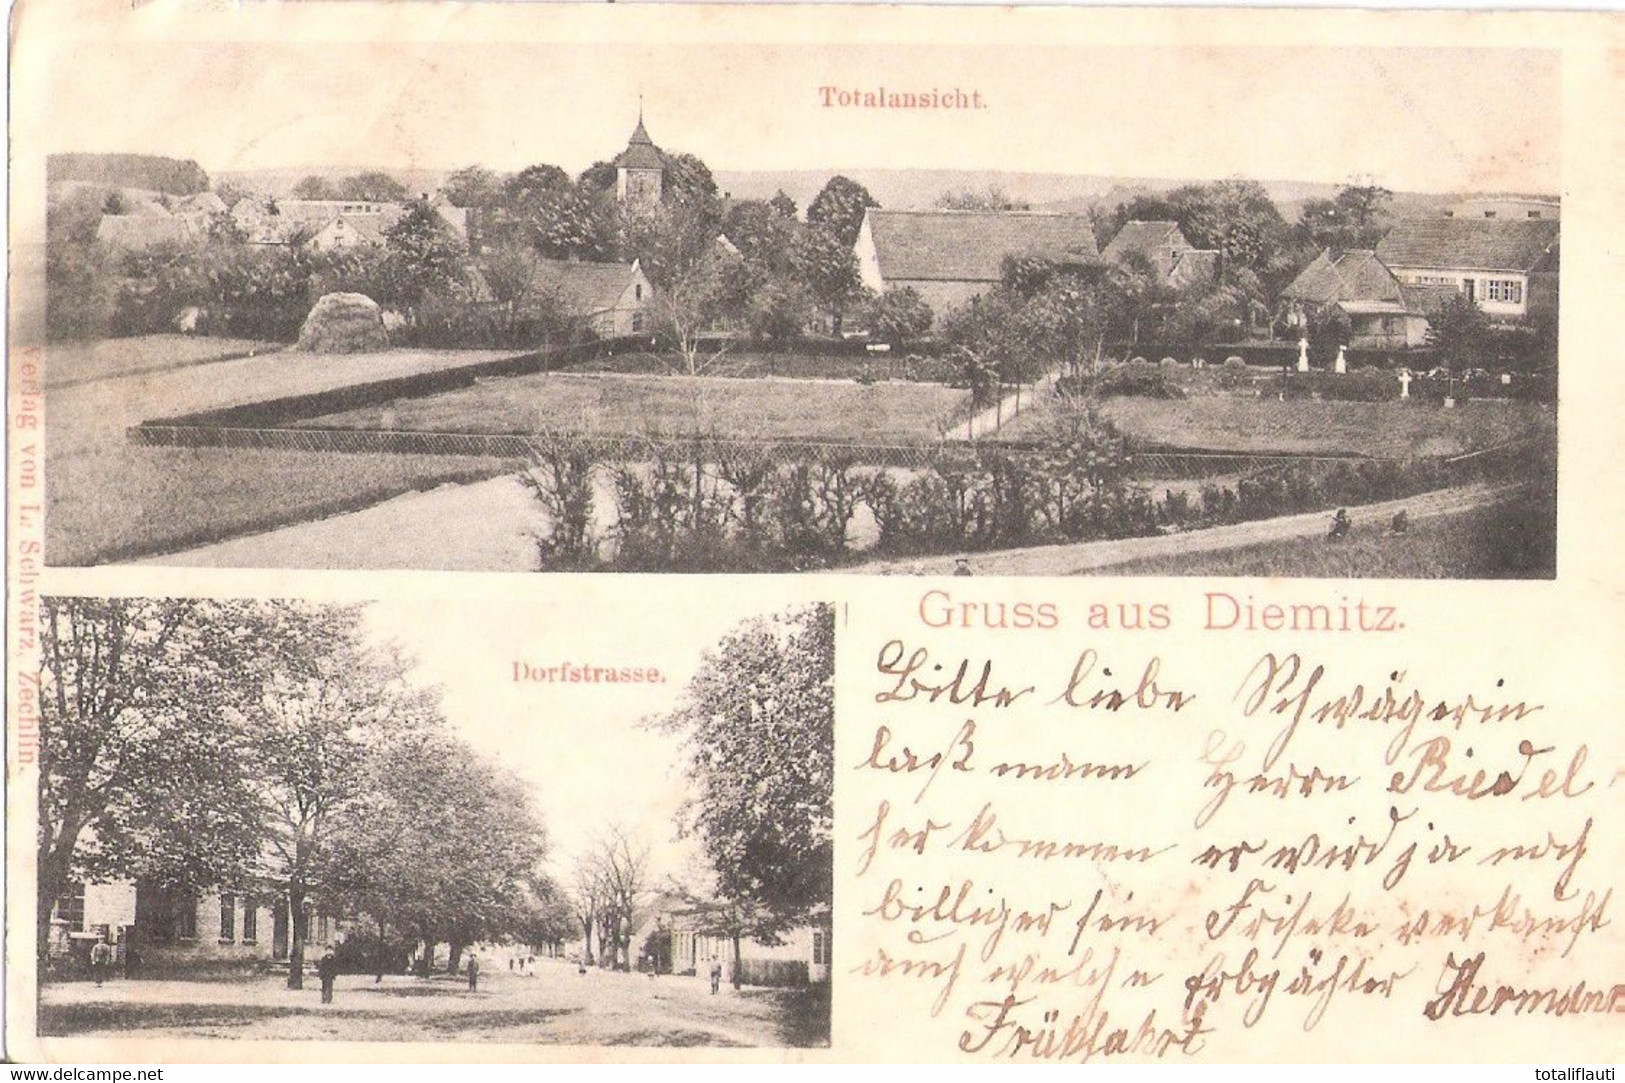 Totalansicht.
Verlag von L. Schwarz, Zechlin.
Gruss aus Diemitz.
Dorfstrasse.
Bitte liebe Schwägerin
laß mann Herrn Riedel
her kommen er wird ja noch
billiger sein Friseke verkauft
auch welche Erbpächter Hermann
Frükfahrt
www.delcampe.net
totaliflauti